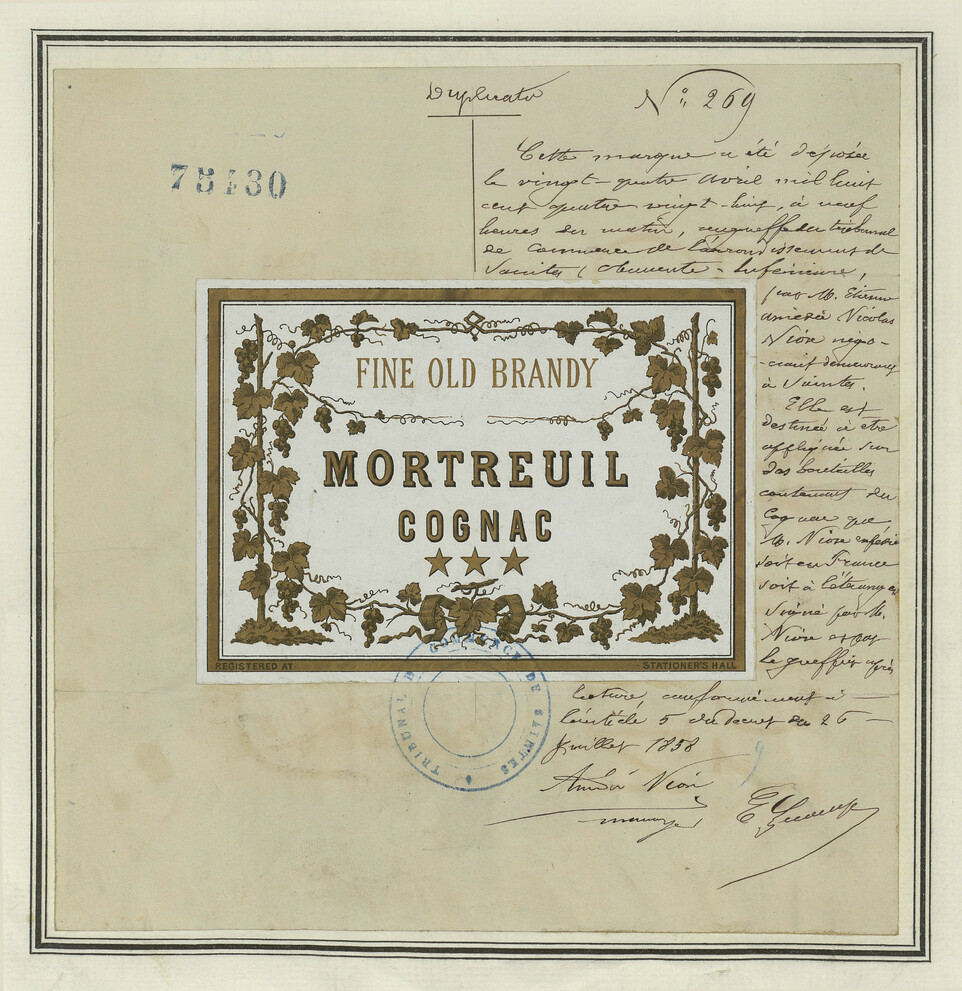 Duplicata
N° 269
75430
Cette marque a été déposée
le vingt-quatre avril mil huit
cent quatre vingt-huit, à neuf
heures du matin, au greffe du tribunal
de commerce de l'arrondissement de
Saintes (Charente-Inférieure,
par M. Etienne
Amédée Nicolas
Nion négo-
-ciant demeurant
à Saintes.
Elle est
destinée à être
appliquée sur
des bouteilles
contenant du
Cognac que
M. Nion expédie
soit en France
soit à l'étranger
Signé par M.
Nion et par
le greffier après
lecture, conformément à
l'article 5 du décret du 26
juillet 1858
FINE OLD BRANDY
MORTREUIL
COGNAC
REGISTERED AT
STATIONER'S HALL
TRIBUNAL DE COMMERCE DE SAINTES
Nion